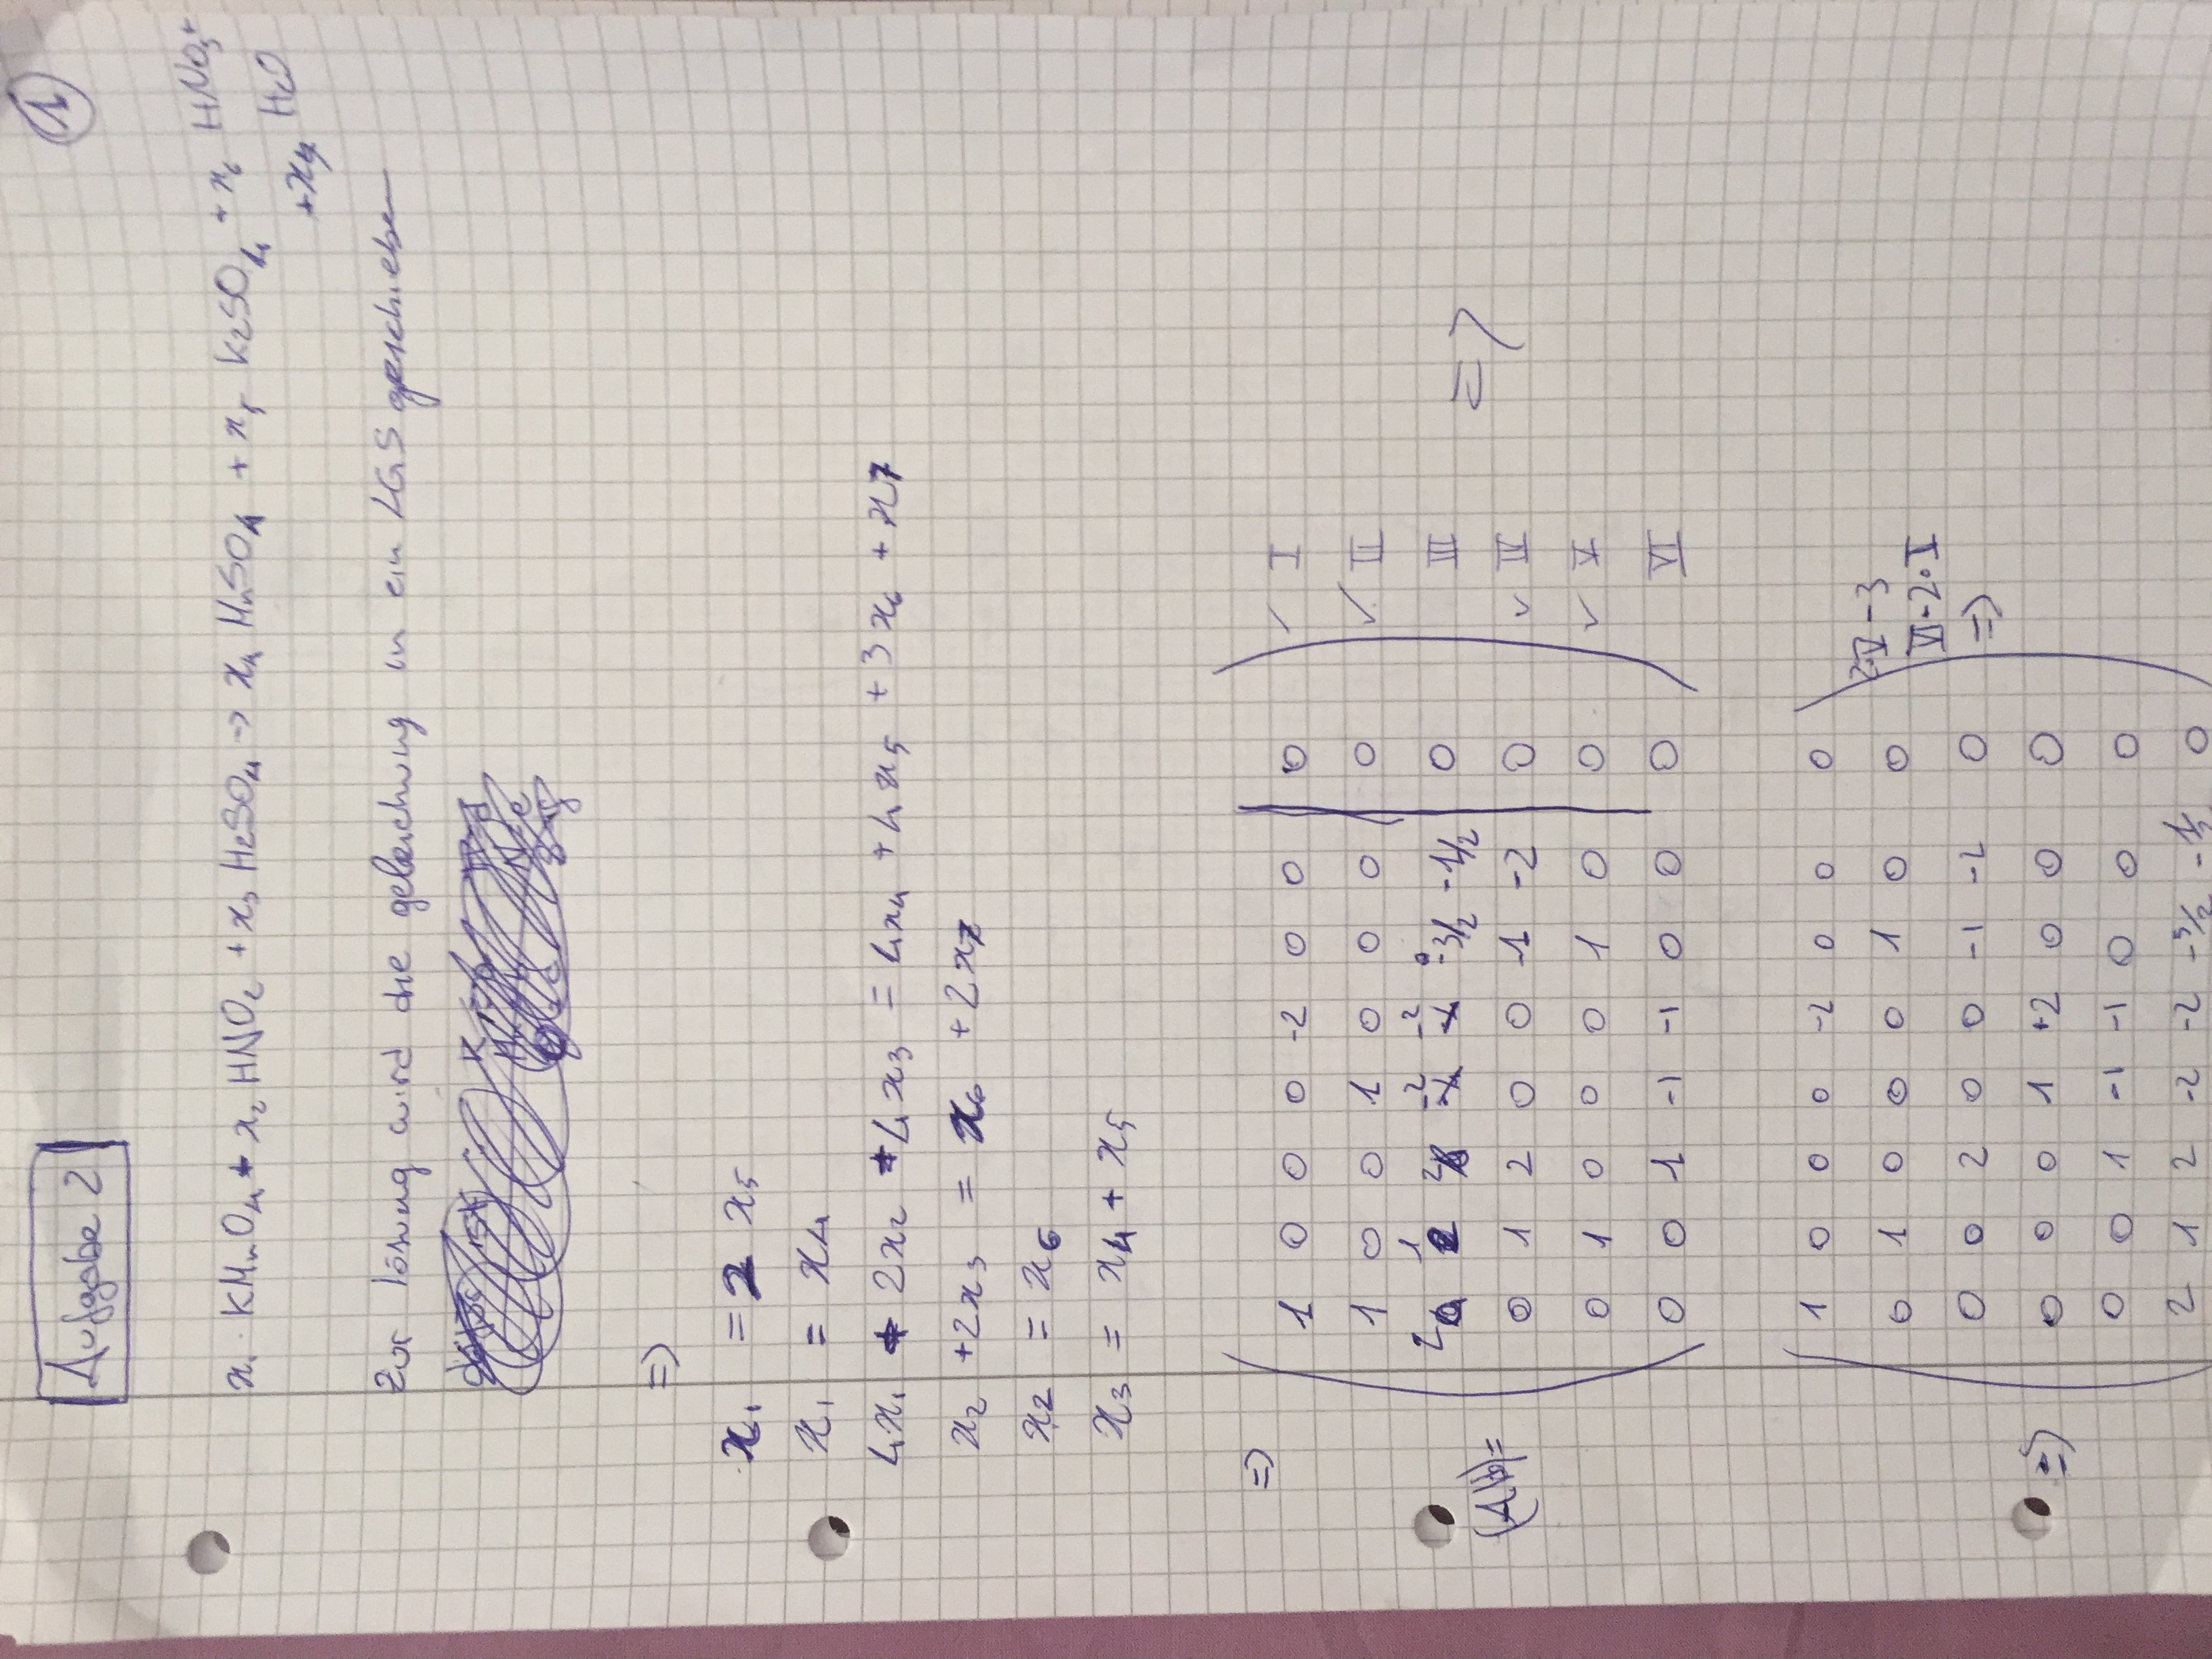 1
Aufgabe 2
x₁ · KMnO₄ + x₂ HNO₂ + x₃ H₂SO₄ → x₄ MnSO₄ + x₅ K₂SO₄ + x₆ HNO₃ +
+ x₇ H₂O
Zur lösung wird die geleichung in ein LGS geschieben
=>
x₁ = 2 x₅
x₁ = x₄
4x₁ + 2x₂ + 4x₃ = 4x₄ + 4x₅ + 3x₆ + x7
x₂ + 2x₃ = x₆ + 2x7
x₂ = x₆
x₃ = x₄ + x₅
=>
1 0 0 0 -2 0 0 | 0 ✓ I
1 0 0 1 0 0 0 | 0 ✓ II
2 1 2 -2 -2 -3/2 -1/2 | 0 III
(A|b) = 0 1 2 0 0 -1 -2 | 0 ✓ IV =>
0 1 0 0 0 1 0 | 0 ✓ V
0 0 1 -1 -1 0 0 | 0 VI
1 0 0 0 -2 0 0 0
0 1 0 0 0 1 0 0 2·V - 3
VI - 2 · I
0 0 2 0 0 -1 -2 0 =>
=> 0 0 0 1 +2 0 0 0
0 0 1 -1 -1 0 0 0
2 1 2 -2 -2 -3/2 -1/2 0